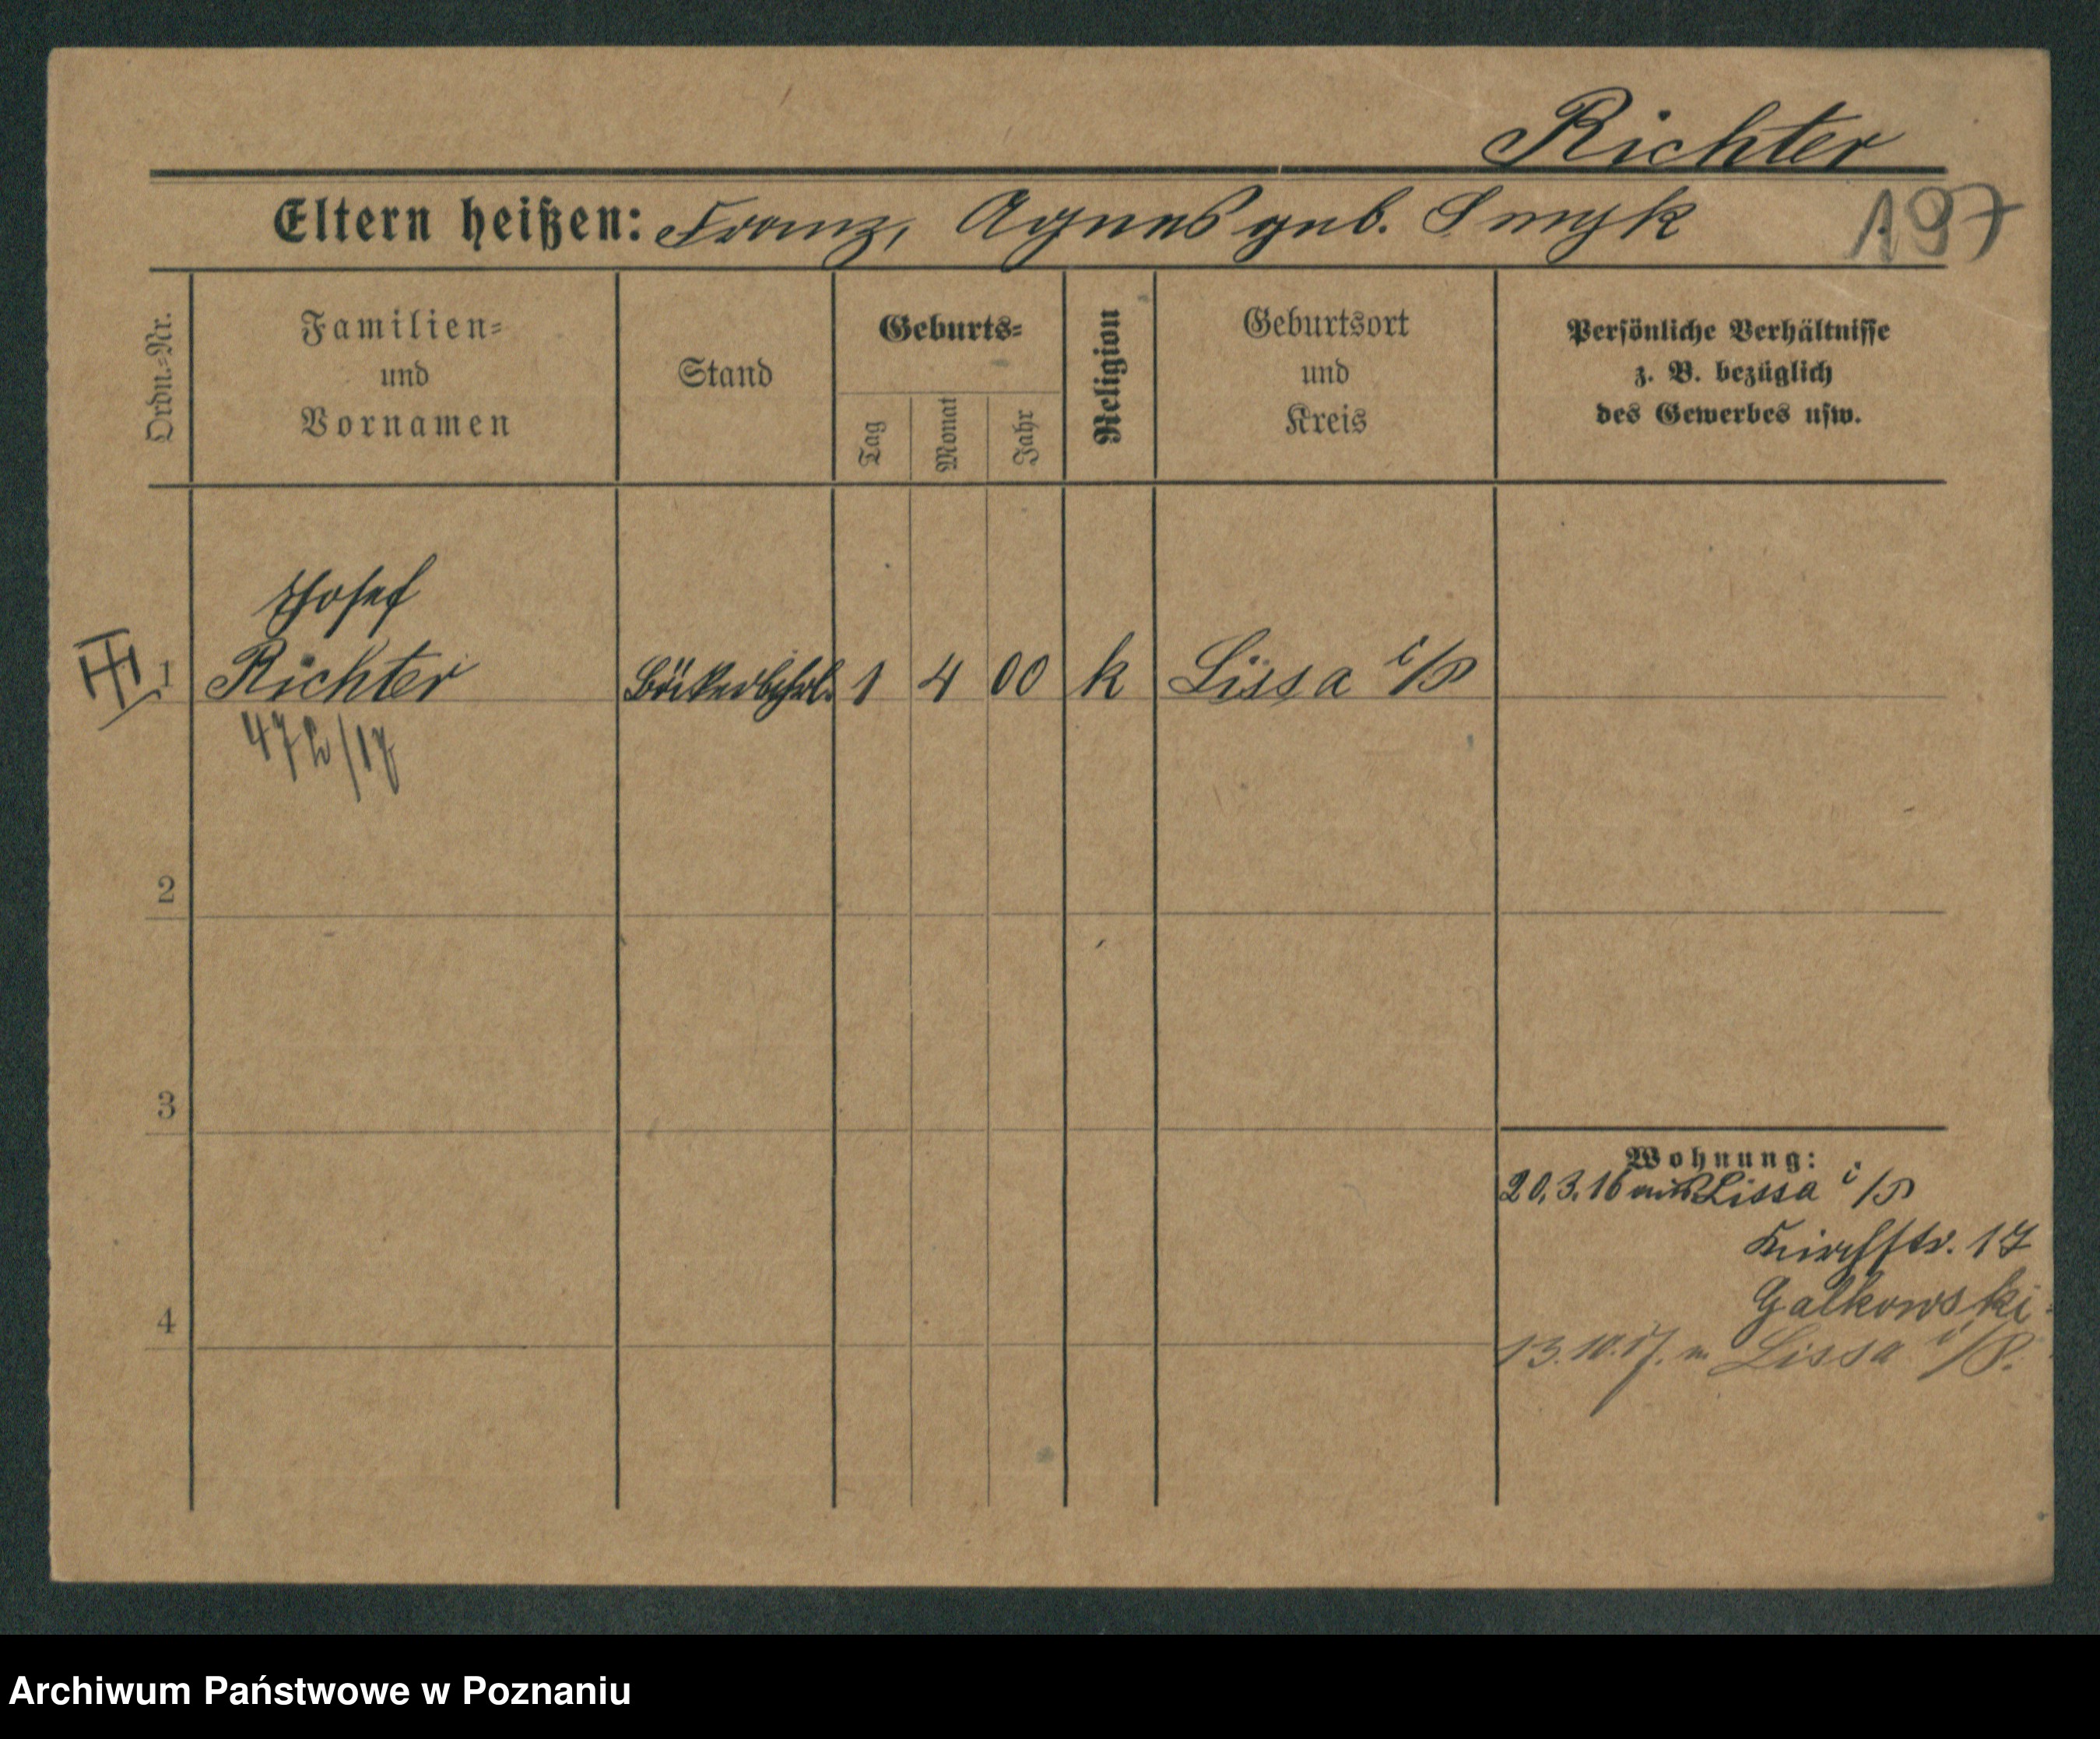 Richter
Eltern heißen: Franz, Agnes geb. Smyk
197
Ordn.-Nr.
Familien-
und
Vornamen
Stand
Geburts-
Tag
Monat
Jahr
Religion
Geburtsort
und
Kreis
Persönliche Verhältnisse
z. B. bezüglich
des Gewerbes usw.
Josef
1 Richter Bäckerlehrl. 1 4 00 k Lissa i/P
472/17
2
3
4
Wohnung:
20.3.16 aus Lissa i/P
Kirchstr. 17
Galkowski
13.10.17. n. Lissa i/P.
Archiwum Państwowe w Poznaniu